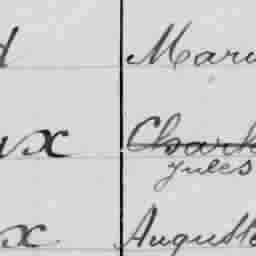 d Mari
ux Charl
Jules
x Auguste